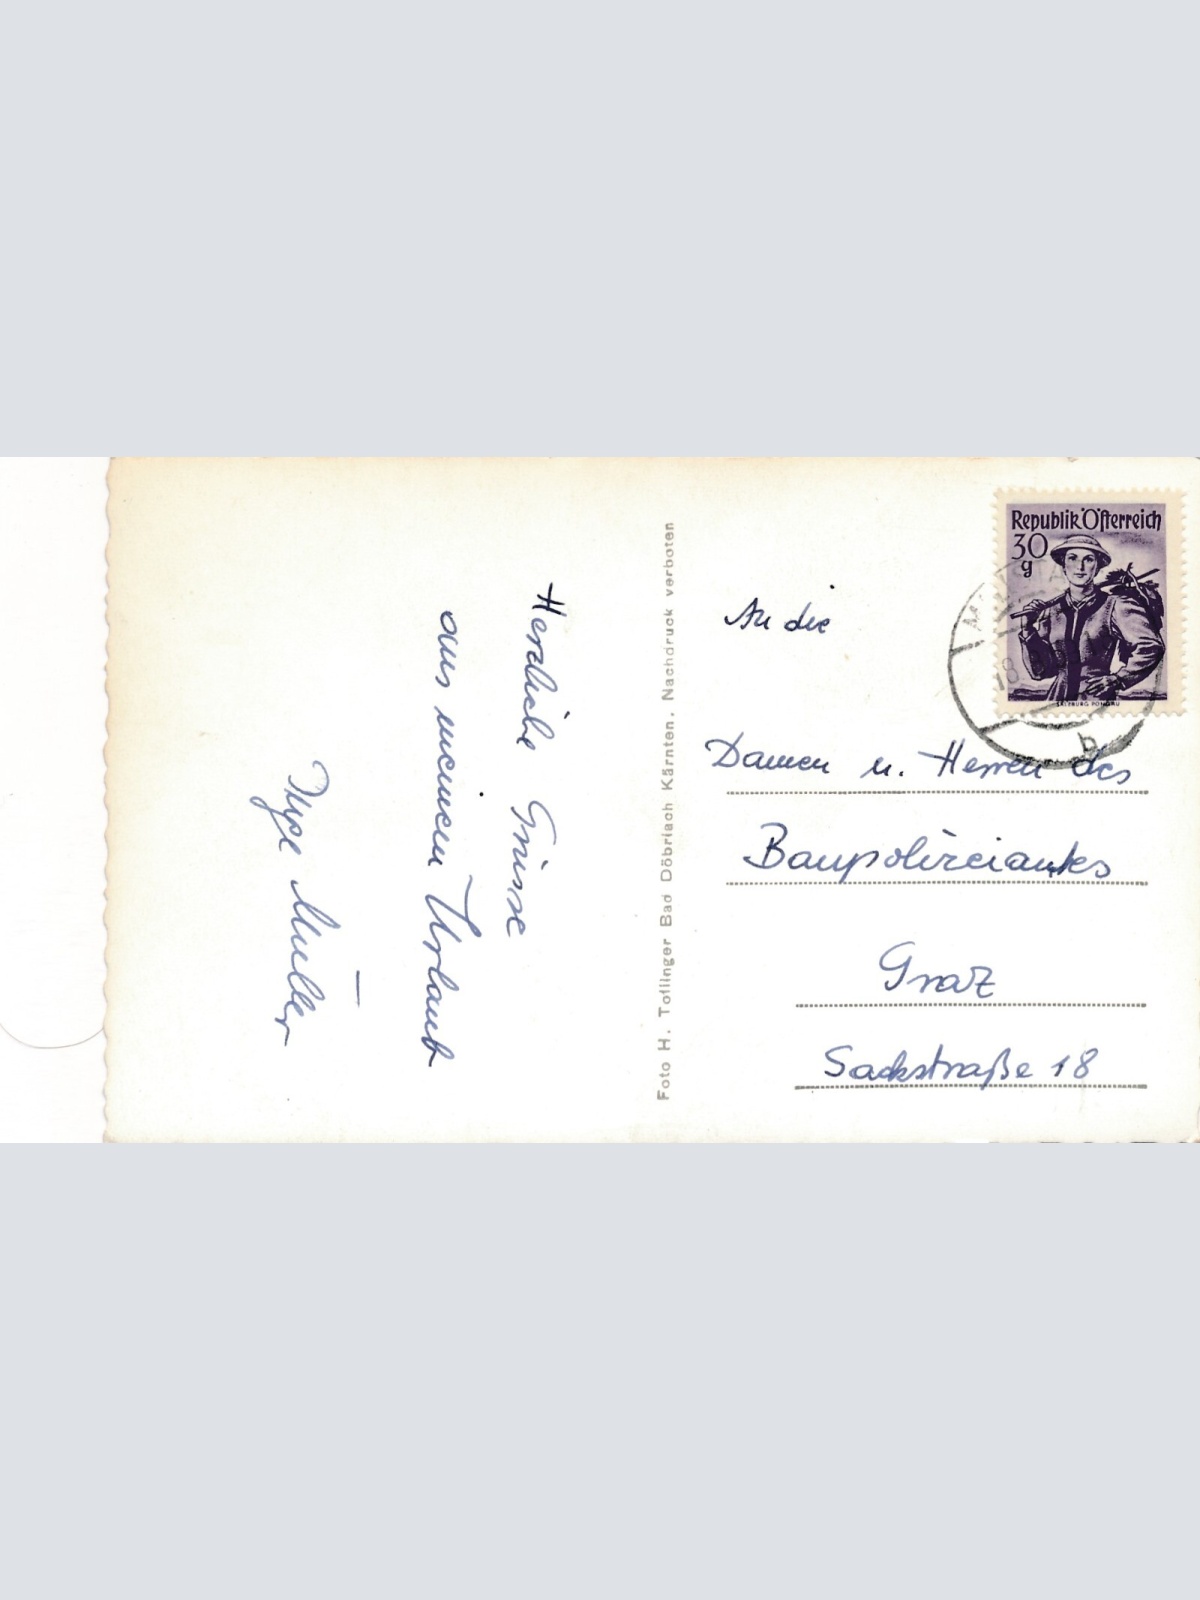 Herzliche Grüsse
aus meinem Urlaub
Müller
Foto H. Toflinger Bad Döbriach Kärnten. Nachdruck verboten
Republik Österreich
30
g
SALZBURG PONGAU
18
b
An die
Damen u. Herren des
Baupolizeiamtes
Graz
Sackstraße 18